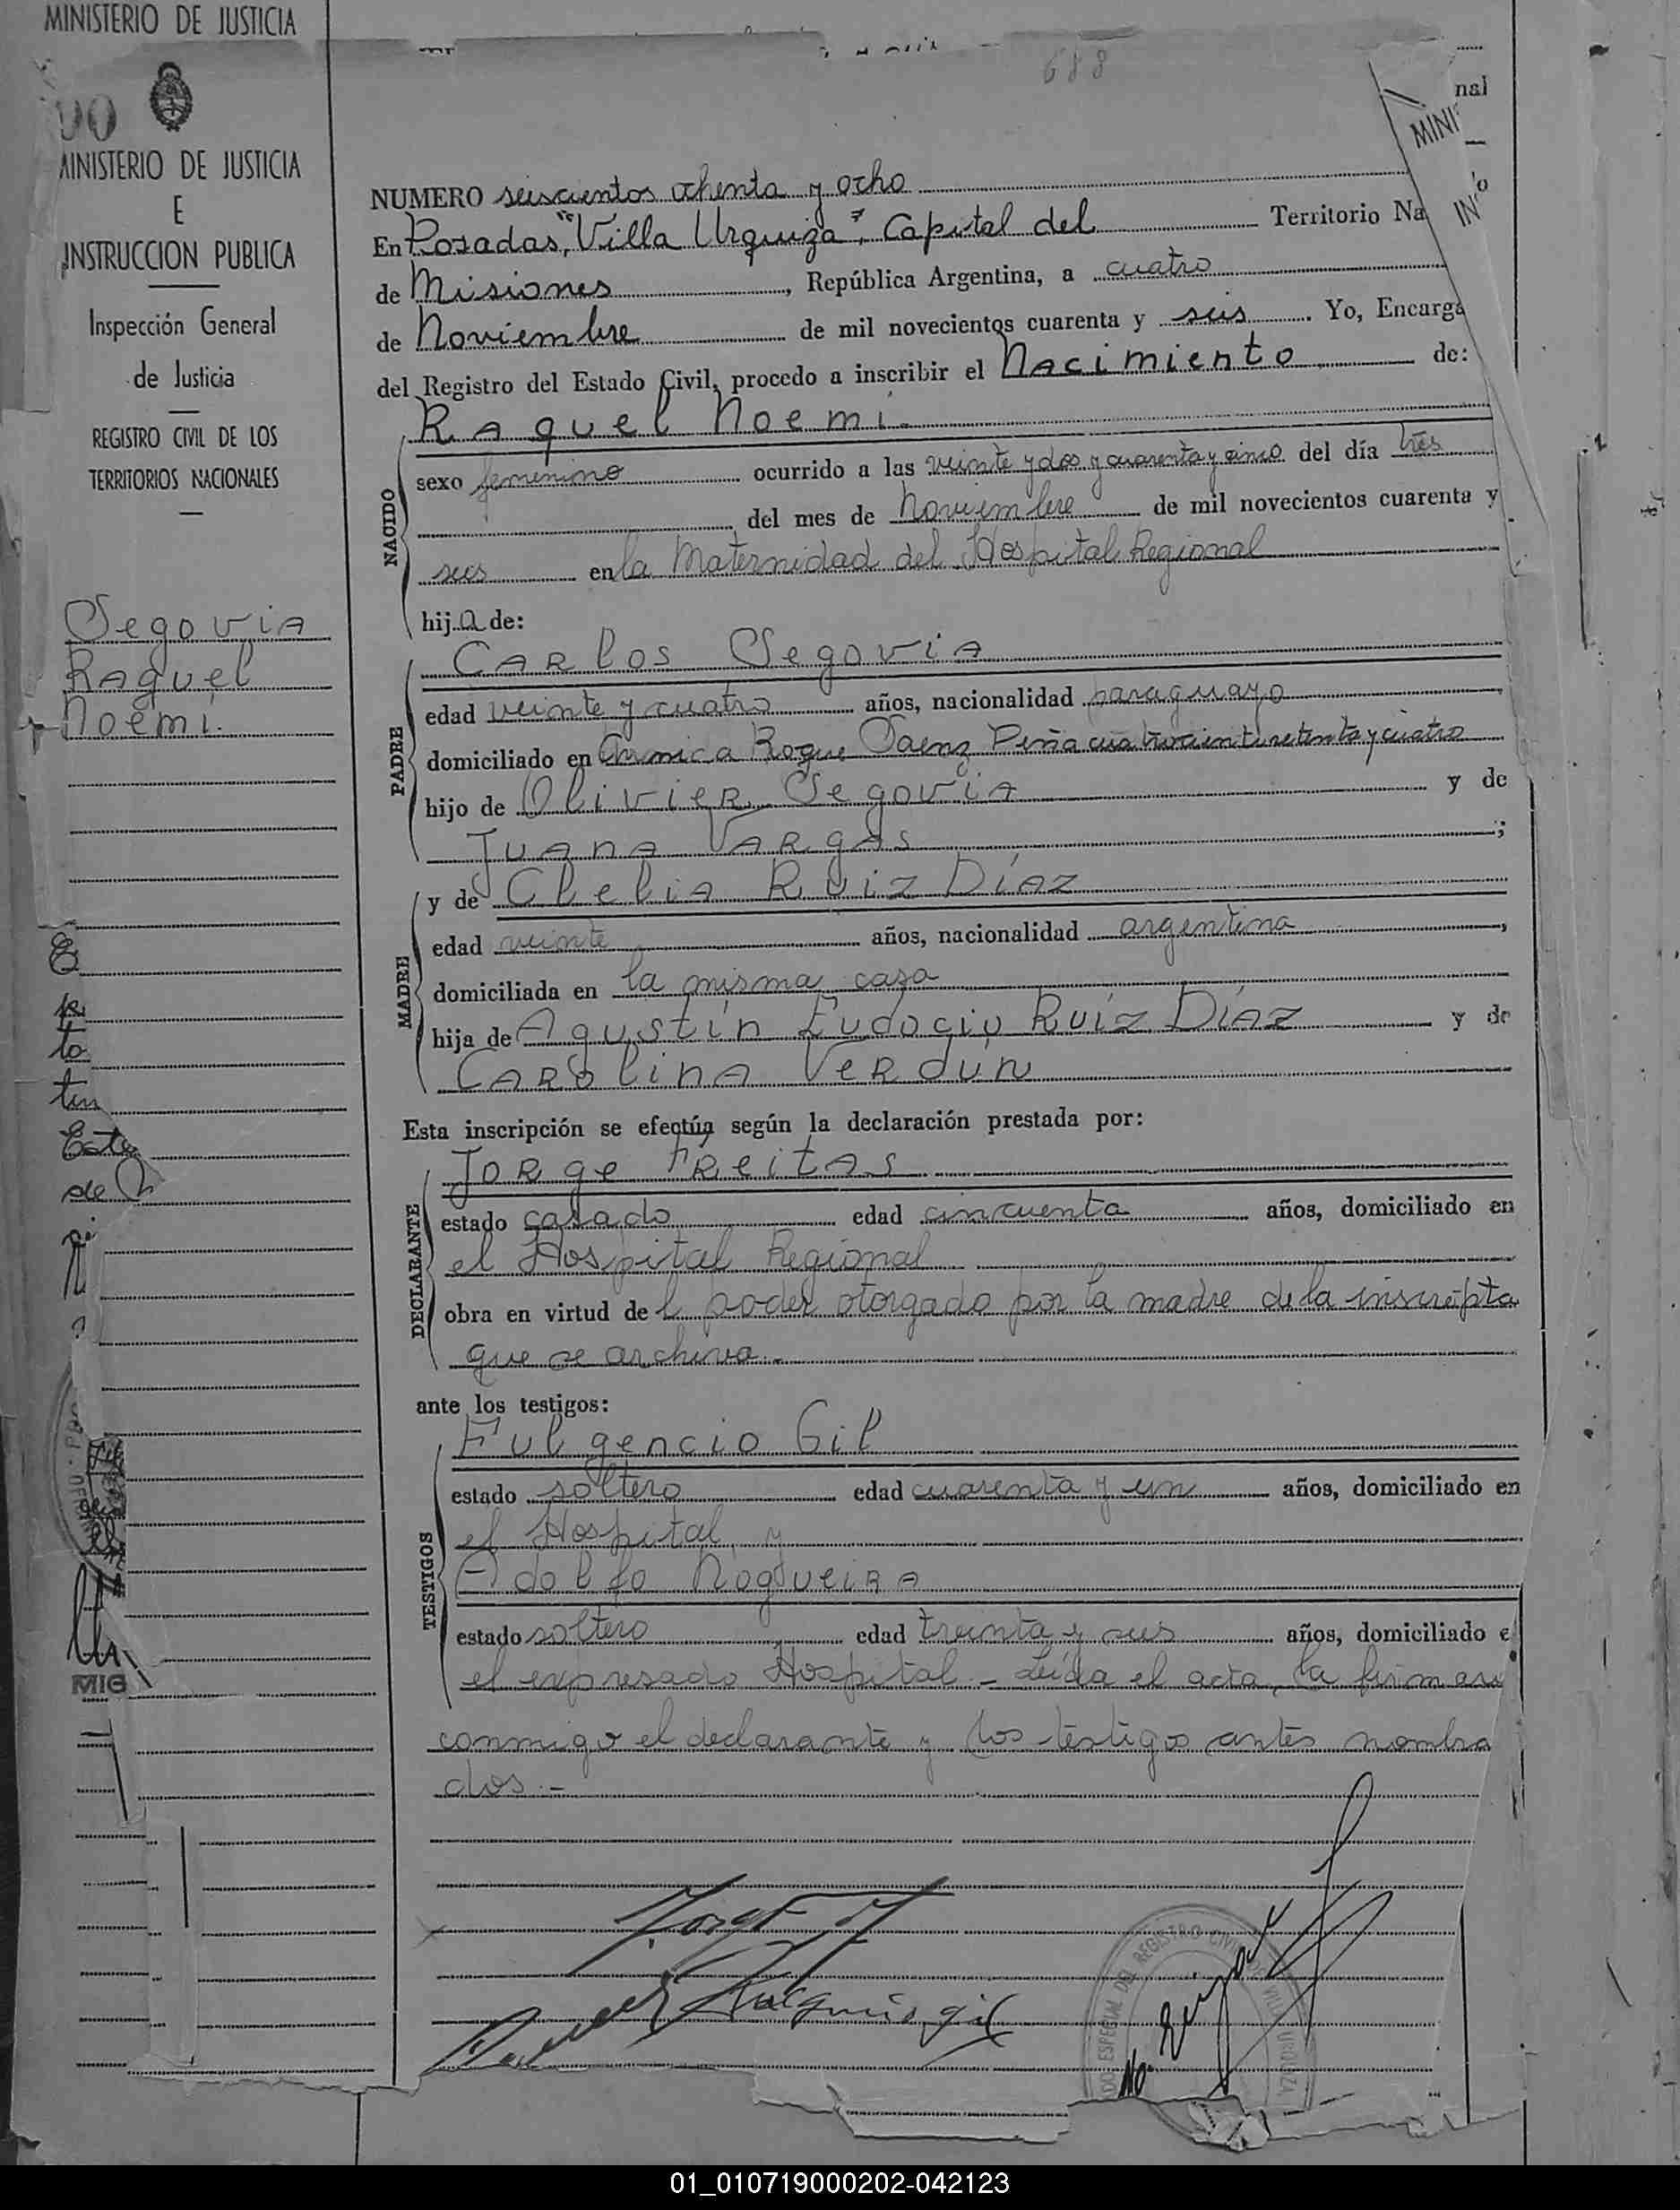 MINISTERIO DE JUSTICIA
688
nal
MINI
IN
MINISTERIO DE JUSTICIA
E
INSTRUCCION PUBLICA
Inspección General
de Justicia
REGISTRO CIVIL DE LOS
TERRITORIOS NACIONALES
Segovia
Raquel
Noemi.
to
tin
Este
de
MIG
NUMERO seiscientos ochenta y ocho
En Posadas, "Villa Urquiza", Capital del Territorio Na
de Misiones, República Argentina, a cuatro
de Noviembre de mil novecientos cuarenta y seis. Yo, Encarga
del Registro del Estado Civil, procedo a inscribir el Nacimiento de:
Raquel Noemi.
NACIDO
sexo femenino ocurrido a las veinte y dos y cuarenta y cinco del día tres
del mes de Noviembre de mil novecientos cuarenta y
seis en la Maternidad del Hospital Regional
hija de:
PADRE
Carlos Segovia
edad veinte y cuatro años, nacionalidad paraguayo
domiciliado en Roque Saenz Peña y cuatro
hijo de Olivier Segovia y de
Juana Vargas;
MADRE
y de Clelia Ruiz Díaz
edad veinte años, nacionalidad argentina,
domiciliada en la misma casa
hija de Agustín Eudocio Ruiz Díaz y de
Carolina Verdún
Esta inscripción se efectúa según la declaración prestada por:
DECLARANTE
Jorge Freitas
estado casado edad cincuenta años, domiciliado en
el Hospital Regional
obra en virtud del poder otorgado por la madre de la inscripta
que se archiva.-
ante los testigos:
TESTIGOS
Fulgencio Gil
estado soltero edad cuarenta y un años, domiciliado en
el Hospital y
Adolfo Nogueira
estado soltero edad treinta y seis años, domiciliado e
el expresado Hospital - Leída el acta, la firman
conmigo el declarante y los testigos antes nombra
dos.-
REGISTRO CIVIL
01_010719000202-042123